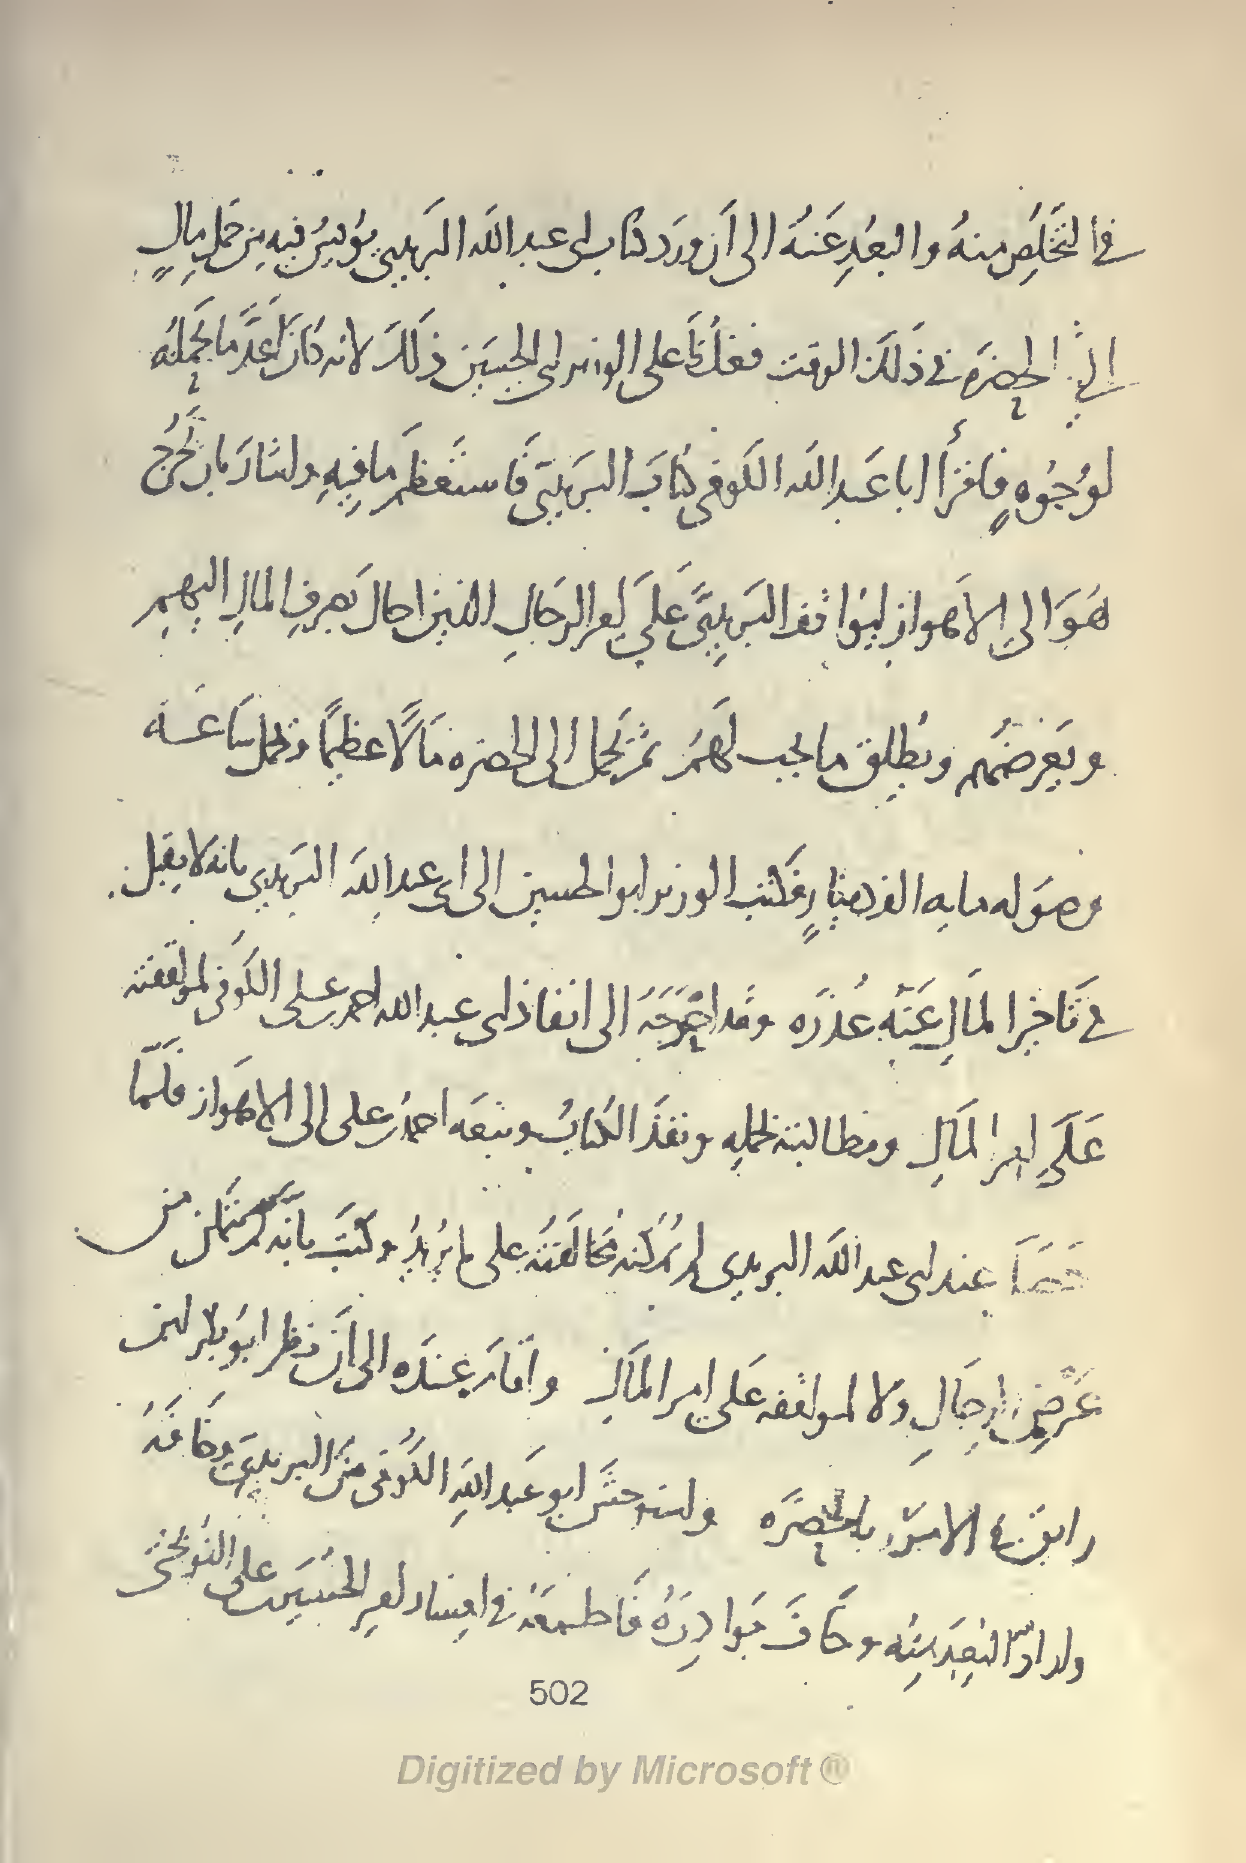 في التخلص منه والبعد عنه الى ان ورد كتاب ابى عبد الله البريدى يؤيس فيه من حمل مال
الى الحضرة في ذلك الوقت فغلظ على الوزير ابى الحسين ذلك لانه كان اعد ما يحمله
لوجوه فاقرأ ابا عبد الله الكوفى كتاب البريدى فاستعظم ما فيه واشار بان يخرج
هو الى الاهواز ليواقف البريدى على امر الرجال الذين احال بصرف المال اليهم
ويعرضهم ويطلق ما يجب لهم ثم يحمل الى الحضره مالا عظيما ويحمل ساعة
وصوله مايه الف دينار فكتب الوزير ابو الحسين الى ابى عبد الله البريدى بانه لا يقبل
في تاخير المال عنه عذره وقد احوجه الى انفاذ ابى عبد الله احمد بن على الكوفى لمواقفته
على امر المال ومطالبته بحمله ونفذ الكتاب وتبعه احمد بن على الى الاهواز فلما
حصل عند ابى عبد الله البريدى لم يمكنه مخالفته على ما يريد وكتب بانه لم يتمكن من
عرض الرجال ولا لمواقفه على امر المال واقام عنده الى ان نظر ابو بكر ابن
رايق في الامور بالحضره واستوحش ابو عبد الله الكوفى من البريدى وخافه
واراد البعد منه وخاف بوادره فاطمعه في افساد امر الحسين بن على النوبختى
502
Digitized by Microsoft ®